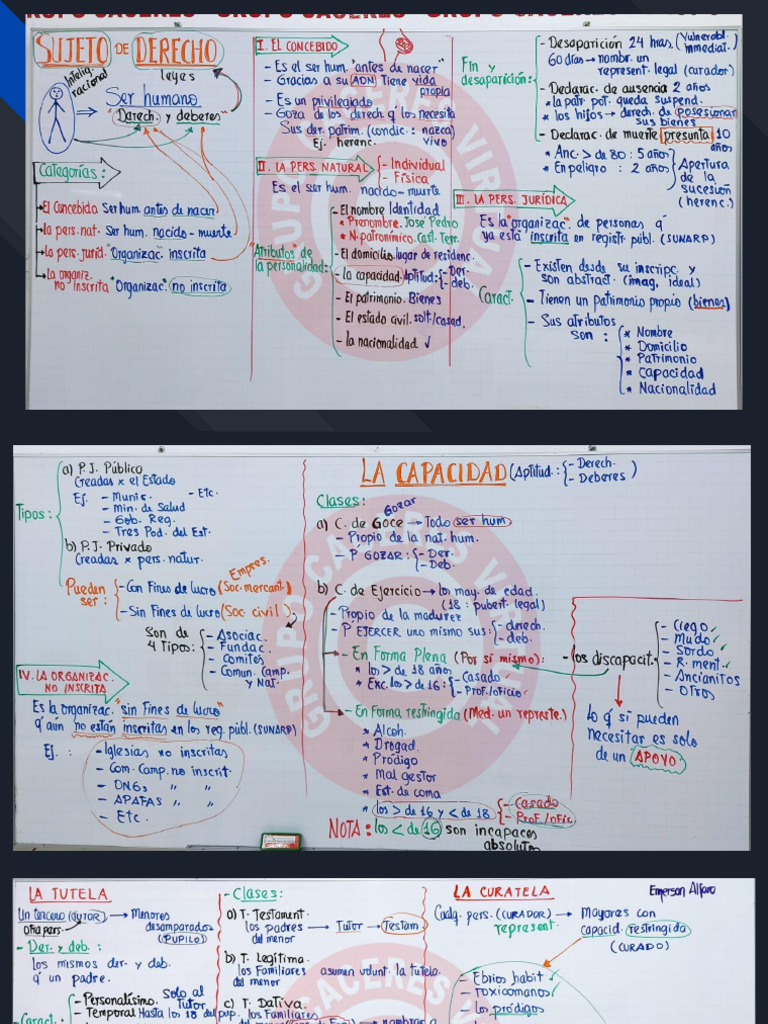 SUJETO DE DERECHO
leyes
Intelig.
racional
Ser humano
"Derech. y deberes"
Categorías:
El Concebido Ser hum. antes de nacer
La pers. nat. Ser hum. nacido - muerte
La pers. juríd. "Organizac." inscrita
La organiz.
no inscrita "Organizac." no inscrita
I. EL CONCEBIDO
- Es el ser hum. "antes de nacer"
- Gracias a su ADN Tiene vida
propia
- Es un privilegiado
- Goza de los derech. q' los necesita
Sus der. patrim. (condic.: nazca)
Ej. herenc. vivo
II. LA PERS. NATURAL
- Individual
- Física
Es el ser hum. nacido - muerte
"Atributos" de
la personalidad:
- El nombre Identidad
* Prenombre. José Pedro
* N. patronímico. Cast. Terr.
- El domicilio lugar de residenc.
- La capacidad. Aptitud: - Der.
- deb.
- El patrimonio. Bienes
- El estado civil. solt/casad.
- La nacionalidad. ✓
Fin y
desaparición:
- Desaparición 24 hras. (Vulnerabl.
inmediat.)
60 días → nombr. un
represent. legal (curador)
- Declarac. de ausencia 2 años
* la patr. pot. queda suspend.
* los hijos → derech. de posesionar
sus bienes
- Declarac. de muerte presunta 10
años
* Anc. > de 80 : 5 años
* En peligro : 2 años
Apertura
de la
sucesión
(herenc.)
III. LA PERS. JURÍDICA
Es la "organizac." de personas q'
ya está inscrita en registr. públ. (SUNARP)
Caract.
- Existen desde su inscripc. y
son abstract. (imag. ideal)
- Tienen un patrimonio propio (bienes)
- Sus atributos
son :
* Nombre
* Domicilio
* Patrimonio
* Capacidad
* Nacionalidad
Tipos:
a) P.J. Público
Creadas x el Estado
Ej. - Munic. - Etc.
- Min. de Salud
- Gob. Reg.
- Tres Pod. del Est.
b) P.J. Privado
Creadas x pers. natur.
Pueden
ser :
Empres.
- Con Fines de lucro (Soc. mercant.)
- Sin Fines de lucro (Soc. civil)
Son de
4 Tipos:
- Asociac.
- Fundac.
- Comités
- Comun. Camp.
y Nat.
IV. LA ORGANIZAC.
NO INSCRITA
Es la organizac. "sin fines de lucro"
q' aún no están inscritas en los reg. públ. (SUNARP)
Ej. :
- Iglesias no inscritas
- Com. Camp. no inscrit.
- ONGs " "
- APAFAS " "
- Etc.
LA CAPACIDAD (Aptitud: - Derech.
- Deberes)
Clases:
Gozar
a) C. de Goce → Todo ser hum
- Propio de la nat. hum.
- P' GOZAR: - Der.
- Deb.
b) C. de Ejercicio → los may. de edad.
(18 : pubert. legal)
- Propio de la madurez
- P' EJERCER uno mismo sus: - derech.
- deb.
- En Forma Plena (Por sí mismo):
* los > de 18 años
* Exc. los > de 16 : - Casado
- Prof./oficio
- En Forma restringida (Med. un represte.)
* Alcoh.
* Drogad.
* Pródigo
* Mal gestor
* Est. de coma
* los > de 16 y < de 18 - Casado
- Prof./ofic.
NOTA: los < de 16 son incapaces
absolutos
- los discapacit.
- Ciego
- Mudo
- Sordo
- R. ment.
- Ancianitos
- Otros
Lo q' sí pueden
necesitar es solo
de un APOYO
LA TUTELA
Un tercero (TUTOR) → Menores
otra pers. desamparados
(PUPILO)
- Der. y deb. :
los mismos der. y deb.
q' un padre.
- Personalísimo. Solo al
Tutor
- Temporal Hasta los 18 del pup.
- Clases:
a) T. Testament.
los padres → Tutor → Testam.
del menor
b) T. legítima.
los Familiares asumen volunt. la tutela.
del menor
c) T. Dativa.
los Familiares
LA CURATELA
Emerson Alfaro
Cualq. pers. (CURADOR) → Mayores con
represent. capacid. restringida
(CURADO)
- Ebrios habit.
- Toxicomanos
- Los pródigos